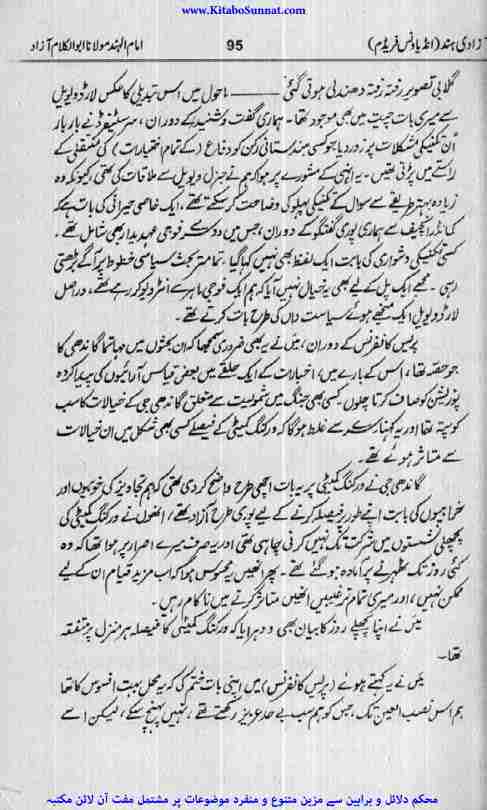 www.KitaboSunnat.com
آزادی ہند (انڈیا ونس فریڈم)
95
امام الہند مولانا ابوالکلام آزاد
گلابی تصویر رفتہ رفتہ دھندلی ہوتی گئی ——— ماحول میں اس تبدیلی کا عکس لارڈ ویویل
سے میری بات چیت میں بھی موجود تھا۔ ہماری گفت و شنید کے دوران، سر سٹیفرڈ نے بار بار
اُن تکنیکی مشکلات پر زور دیا جو کسی ہندستانی رکن کو دفاع (کے تمام اختیارات) کی منتقلی کے
راستے میں پڑتی تھیں۔ یہ انہی کے مشورے پر ہوا کہ ہم نے جنرل ویویل سے ملاقات کی تھی کیونکہ وہ
زیادہ بہتر طریقے سے سوال کے تکنیکی پہلو کی وضاحت کر سکتے تھے، ایک خاصی حیرانی کی بات ہے کہ
کمانڈر انچیف سے ہماری پوری گفتگو کے دوران، جس میں دوسرے فوجی عہدیدار بھی شامل تھے۔
کسی تکنیکی دشواری کی بابت ایک لفظ بھی نہیں کہا گیا۔ تمام تر بحث سیاسی خطوط پر آگے بڑھتی
رہی۔ مجھے ایک پل کے لیے بھی یہ خیال نہیں آیا کہ ہم ایک فوجی ماہر سے انٹرویو کر رہے تھے، دراصل
لارڈ ویویل ایک منجھے ہوئے سیاست داں کی طرح بات کرتے تھے۔
پریس کانفرنس کے دوران، میں نے یہ بھی ضروری سمجھا کہ ان بحثوں میں مہاتما گاندھی کا
جو حصہ تھا، اس کے بارے میں، اخبارات کے ایک حلقے میں بعض قیاس آرائیوں کی پیدا کردہ
پوزیشن کو صاف کرتا چلوں کسی بھی جنگ میں شمولیت سے متعلق گاندھی جی کے خیالات کا سب
کو پتہ تھا اور یہ کہنا یکسر غلط ہوگا کہ ورکنگ کمیٹی کے فیصلے کسی بھی شکل میں ان خیالات
سے متاثر ہوئے تھے۔
گاندھی جی نے ورکنگ کمیٹی پر یہ بات اچھی طرح واضح کر دی تھی کہ ہم تجاویز کی خوبیوں اور
خرابیوں کی بابت اپنے طور پر فیصلہ کرنے کے لیے پوری طرح آزاد تھے، انھوں نے ورکنگ کمیٹی کی
پچھلی نشستوں میں شرکت تک نہیں کرنی چاہی تھی اور یہ صرف میرے اصرار پر ہوا تھا کہ وہ
کئی روز تک ٹھہرنے پر آمادہ ہو گئے تھے۔ پھر انھیں یہ محسوس ہوا کہ اب مزید قیام ان کے لیے
ممکن نہیں، اور میری تمام ترغیبیں انھیں متاثر کرنے میں ناکام رہیں۔
میں نے اپنا پچھلے روز کا بیان بھی دوہرایا کہ ورکنگ کمیٹی کا فیصلہ ہر منزل پر متفقہ
تھا۔
میں نے یہ کہتے ہوئے (پریس کانفرنس) میں اپنی بات ختم کی کہ یہ محل بہت افسوس کا تھا
ہم اس نصب العین تک، جس کو ہم سب بے حد عزیز رکھتے تھے، نہیں پہنچ سکے، لیکن اسے
محکم دلائل و براہین سے مزین متنوع و منفرد موضوعات پر مشتمل مفت آن لائن مکتبہ